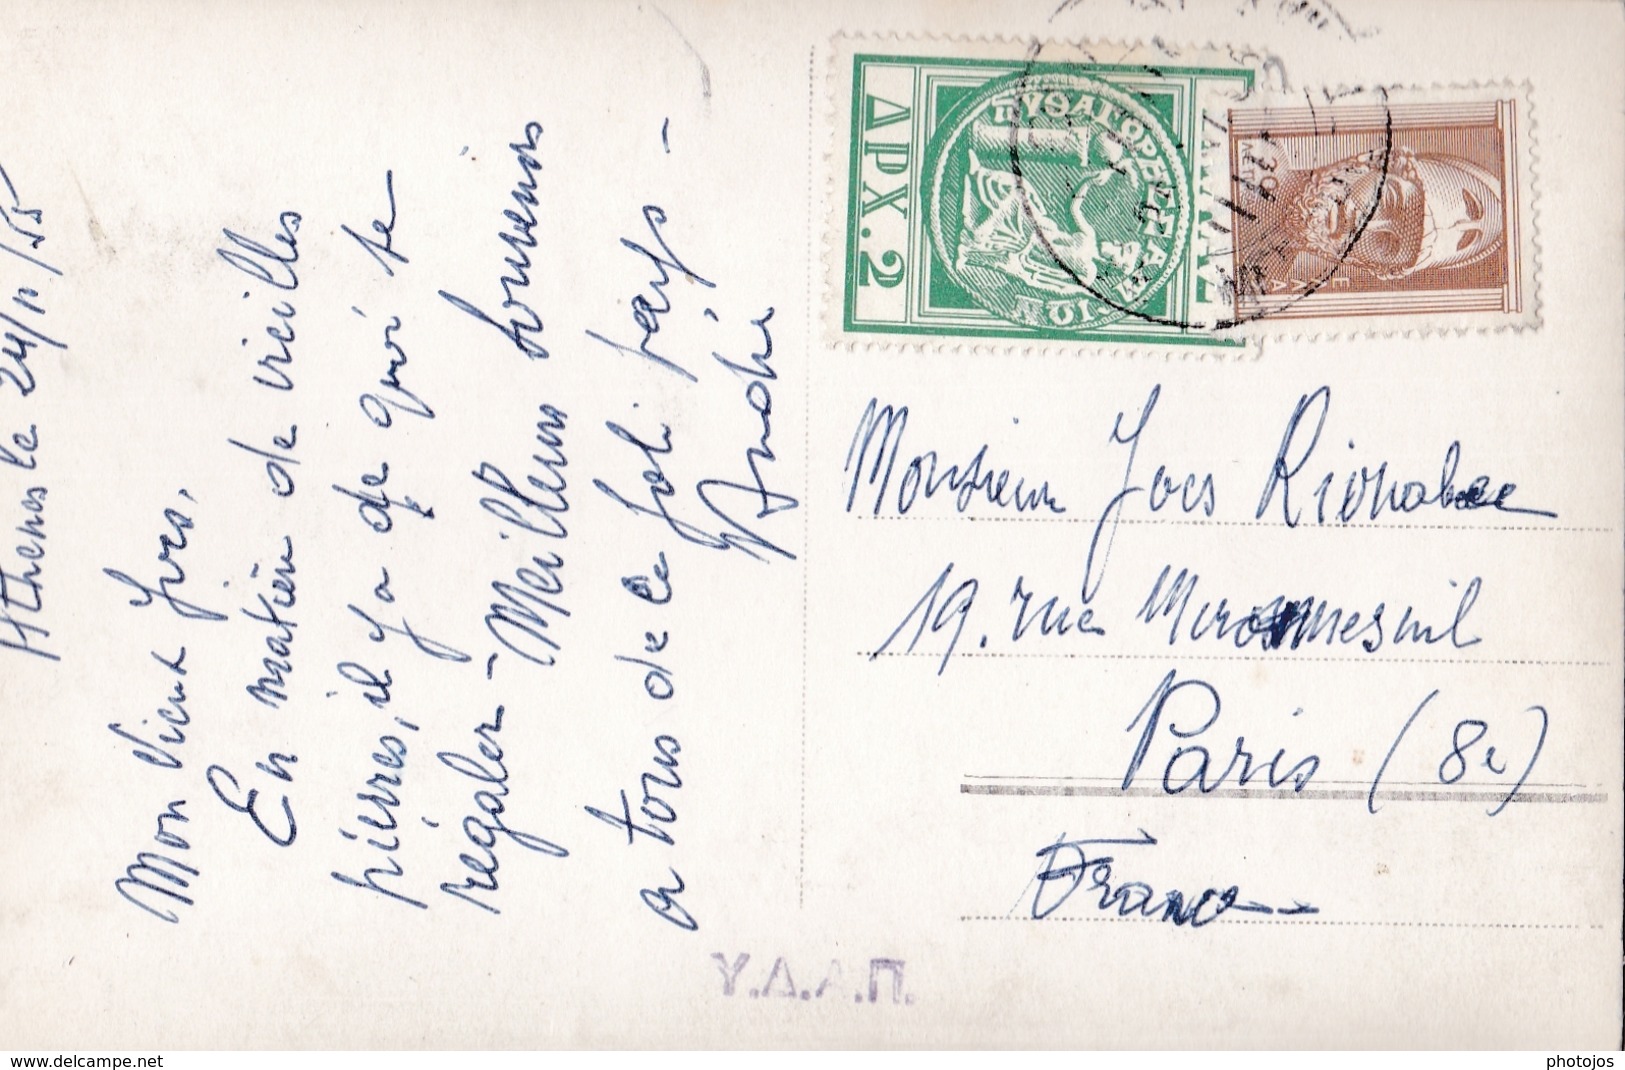 Athènes le 24/11/55
Mon vieux Yves,
En matière de vieilles
pierres, il y a de quoi te
régaler - Meilleurs souvenirs
a tous de ce joli pays -
André
ΔΡΧ. 2
ΠΥΘΑΓΟΡΗΣ
30
ΛΕΠΤ
Monsieur Yves
19. rue Miromesnil
Paris (8e)
France
Υ.Δ.Α.Π.
www.delcampe.net
photojos